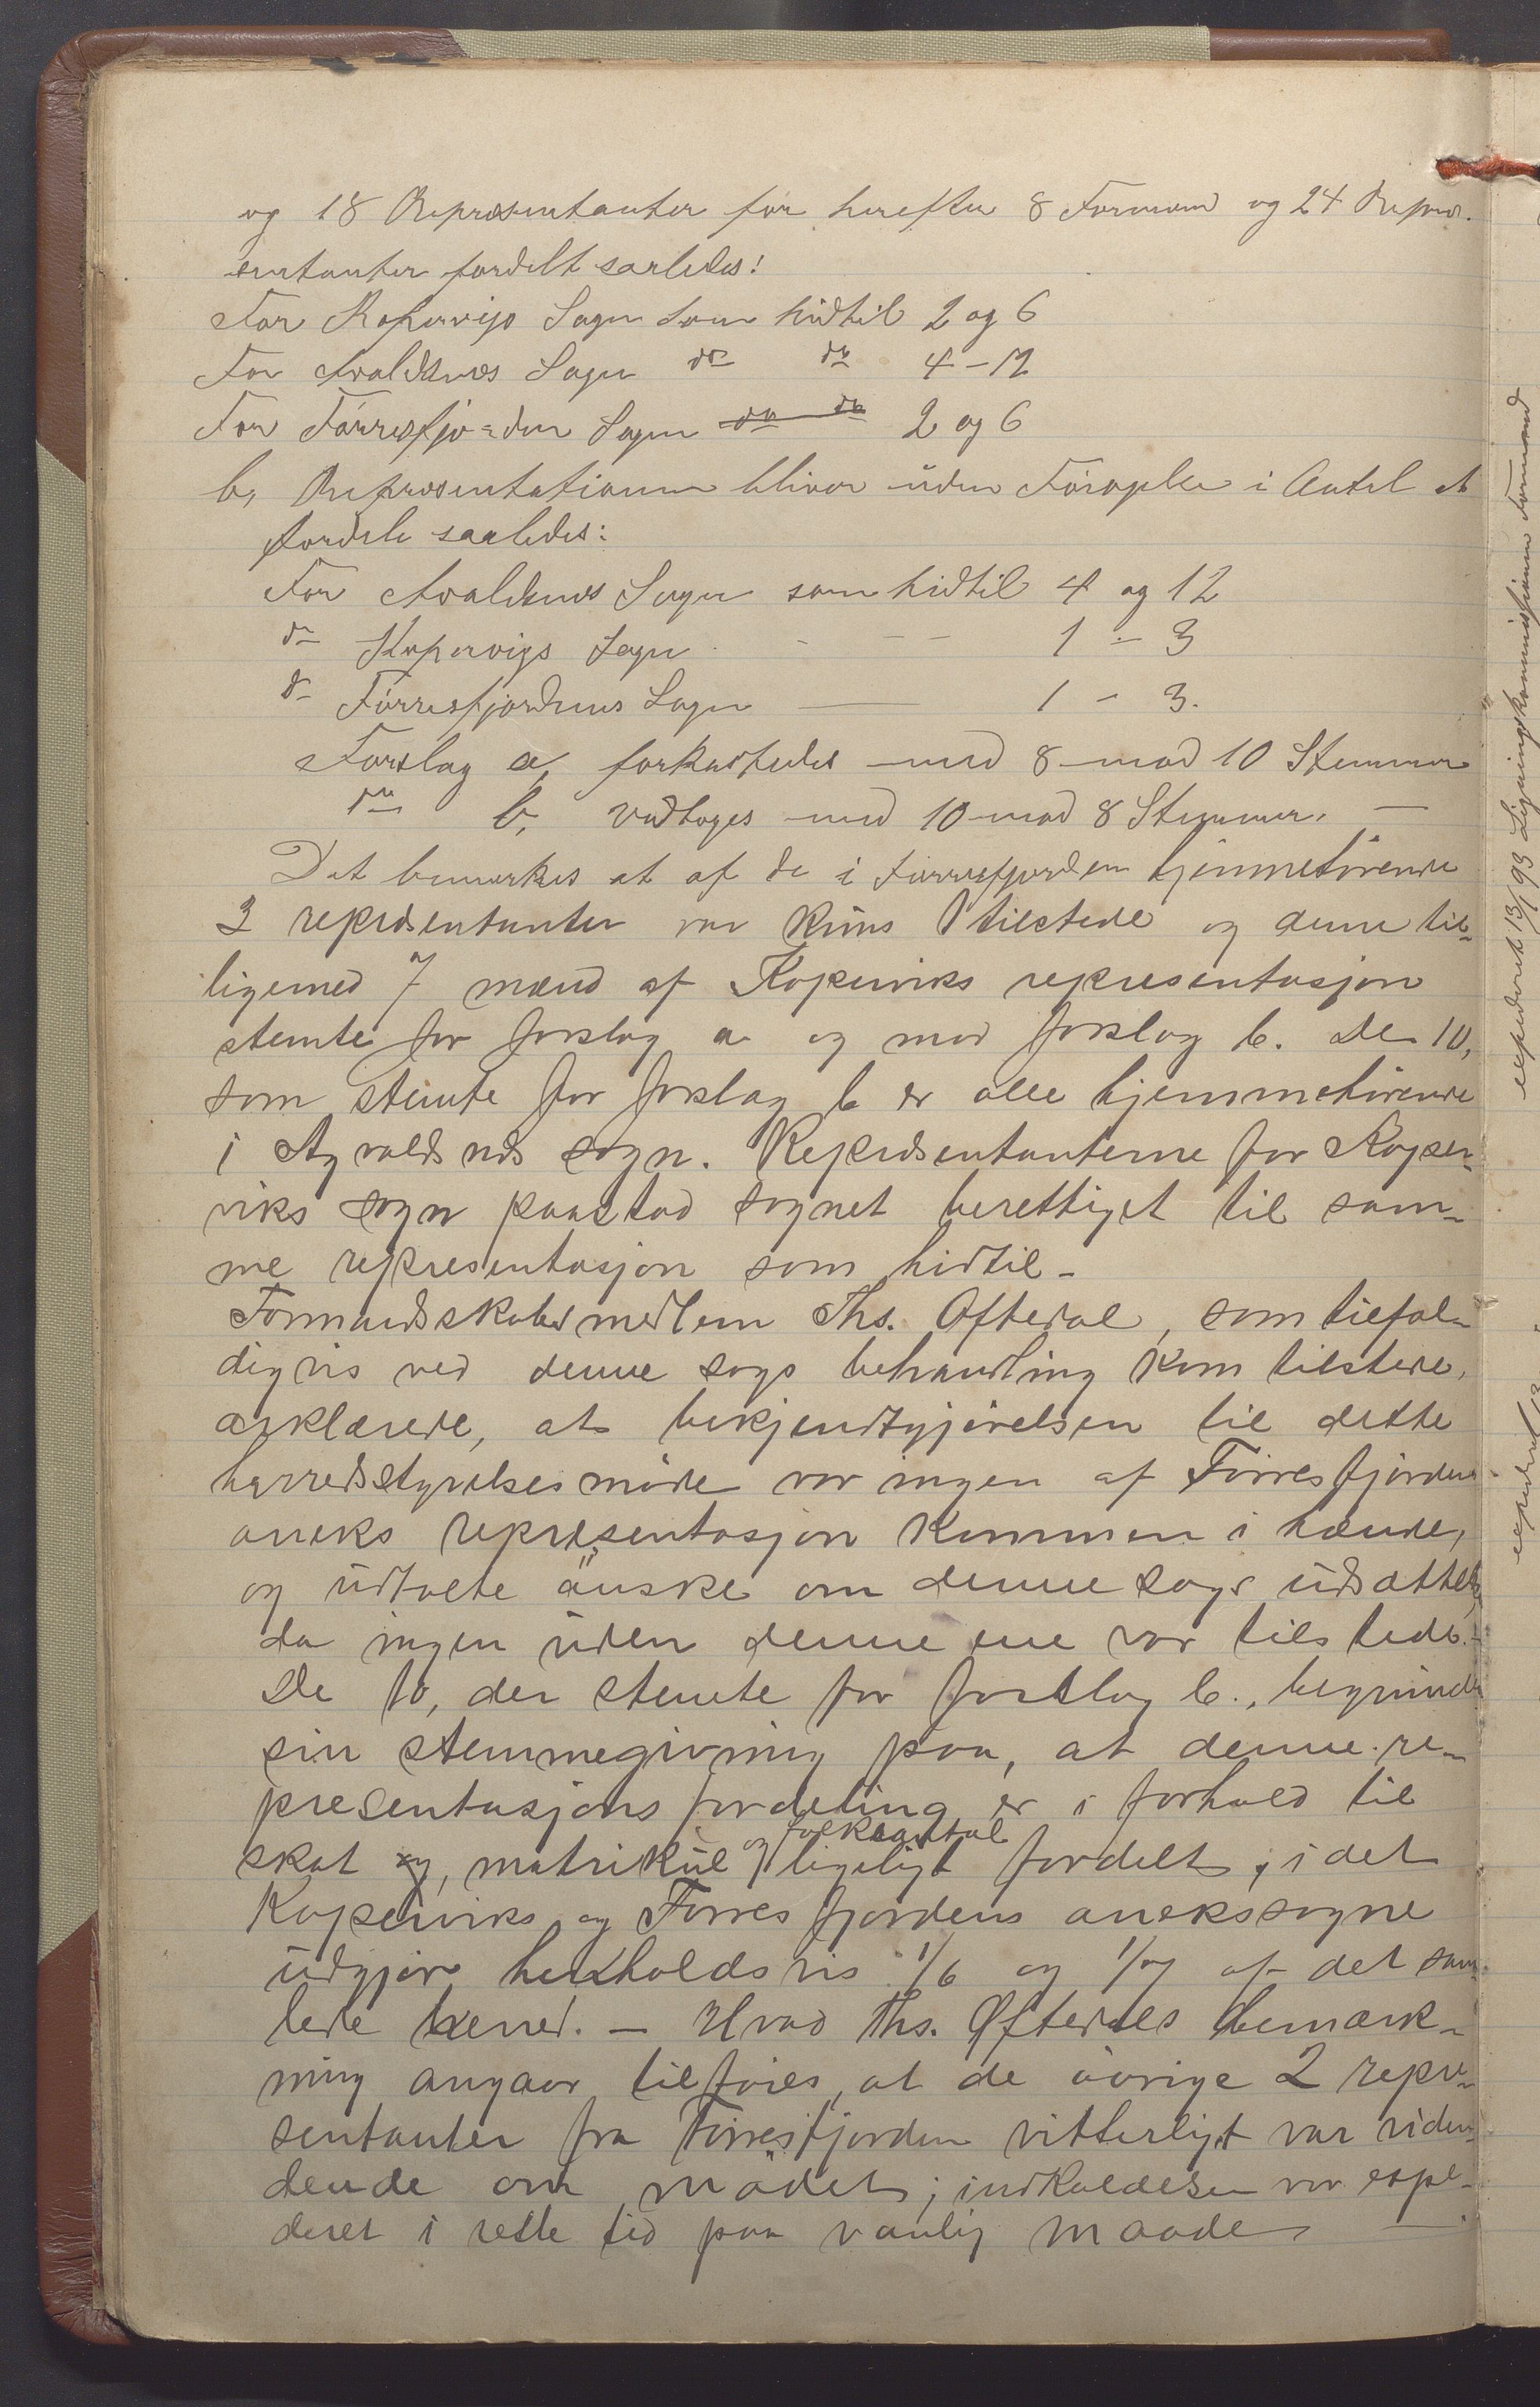 og 18 Repræsentanter før herefter 8 Formænd og 24 Repræ-
sentanter fordelt saaledes!
For Kopervigs Sogn som hidtil 2 og 6
For Avaldsnes Sogn do do 4 - 12
For Førresfjorden Sogn do do 2 og 6
b, Repræsentationen bliver uden Forøgelse i Antal at
fordele saaledes:
For Avaldsnes Sogn som hidtil 4 og 12
do Kopervigs Sogn - - - 1 - 3
do Førresfjordens Sogn — 1 - 3.
Forslag a, forkastedes med 8 mod 10 Stemmer
do b, vedtoges med 10 mod 8 Stemmer. —
Det bemærkes at af de i Førresfjorden hjemmehørende
3 repræsentanter var kuns 1 tilstede og denne til-
ligemed 7 mænd af Koperviks representasjon
stemte for forslag a og mod forslag b. De 10,
som stemte for forslag b er alle hjemmehørende
i Agvaldsnæs sogn. Repræsentanterne for Koper-
viks sogn paastod sognet berettiget til sam-
me representasjon som hidtil -
Formandsskabsmedlem Ths. Oftedal, som tilfæl-
digvis ved denne sags behandling kom tilstede,
ærklærede, at bekjendtgjørelsen til dette
herredsstyrelsesmøde var ingen af Førresfjordens
aneks representasjon kommen i hænde,
og udtalte ønske om denne sags udsættelse,
da ingen uden denne ene var tilstede.-
De 10, der stemte for forslag b., begrunder
sin stemmegivning paa, at denne re-
presentasjons fordeling er i forhold til
skat og, matrikul og folkeantal ligeligt fordelt, idet
Koperviks og Førresfjordens anekssogne
udgjør henholdsvis 1/6 og 1/7 af det sam-
lede herred. — Hvad Ths. Oftedals bemærk-
ning angaar tilføies, at de øvrige 2 repre-
sentanter fra Førresfjorden vitterligt var viden-
dende om mødet; indkaldelsen var expe-
deret i rette tid paa vanlig maade. —
expederet 13/1 93 Ligningskommissionen Formand
expederet